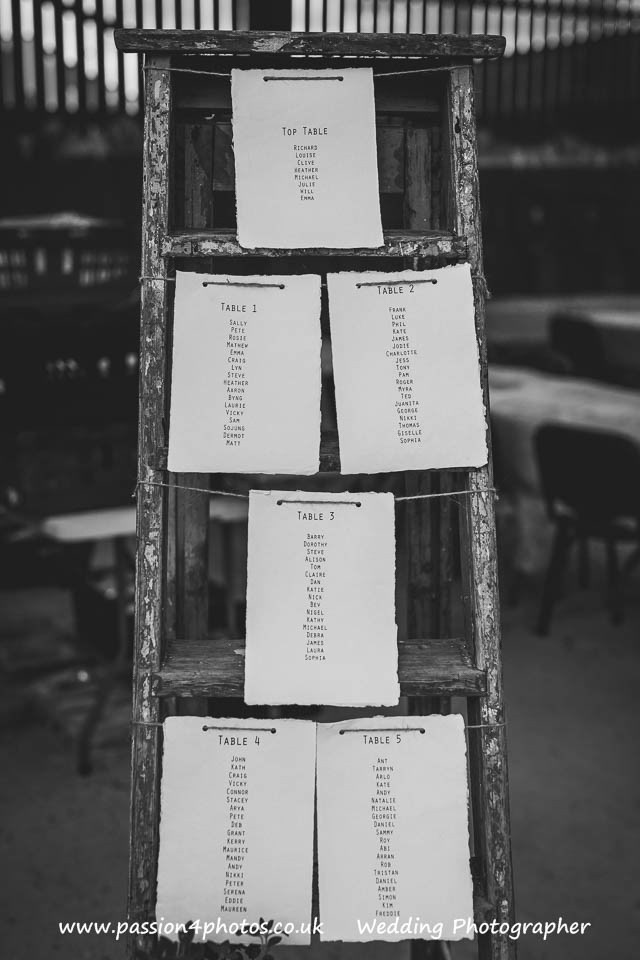 Top Table
Richard
Louise
Clive
Heather
Michael
Julie
Will
Emma
Table 1
Sally
Pete
Rosie
Mathew
Emma
Craig
Lyn
Steve
Heather
Aaron
Byng
Laurie
Vicky
Sam
Sojung
Dermot
Matt
Table 2
Frank
Luke
Phil
Kate
James
Jodie
Charlotte
Jess
Tony
Pam
Roger
Myra
Ted
Juanita
George
Nikki
Thomas
Giselle
Sophia
Table 3
Barry
Dorothy
Steve
Alison
Tom
Claire
Dan
Katie
Nick
Bev
Nigel
Kathy
Michael
Debra
James
Laura
Sophia
Table 4
John
Kath
Craig
Vicky
Connor
Stacey
Arya
Pete
Deb
Grant
Kerry
Maurice
Mandy
Andy
Nikki
Peter
Serena
Eddie
Maureen
Table 5
Ant
Tarryn
Arlo
Kate
Andy
Natalie
Michael
Georgie
Daniel
Sammy
Roy
Abi
Arran
Rob
Tristan
Daniel
Amber
Simon
Kim
Freddie
www.passion4photos.co.uk Wedding Photographer